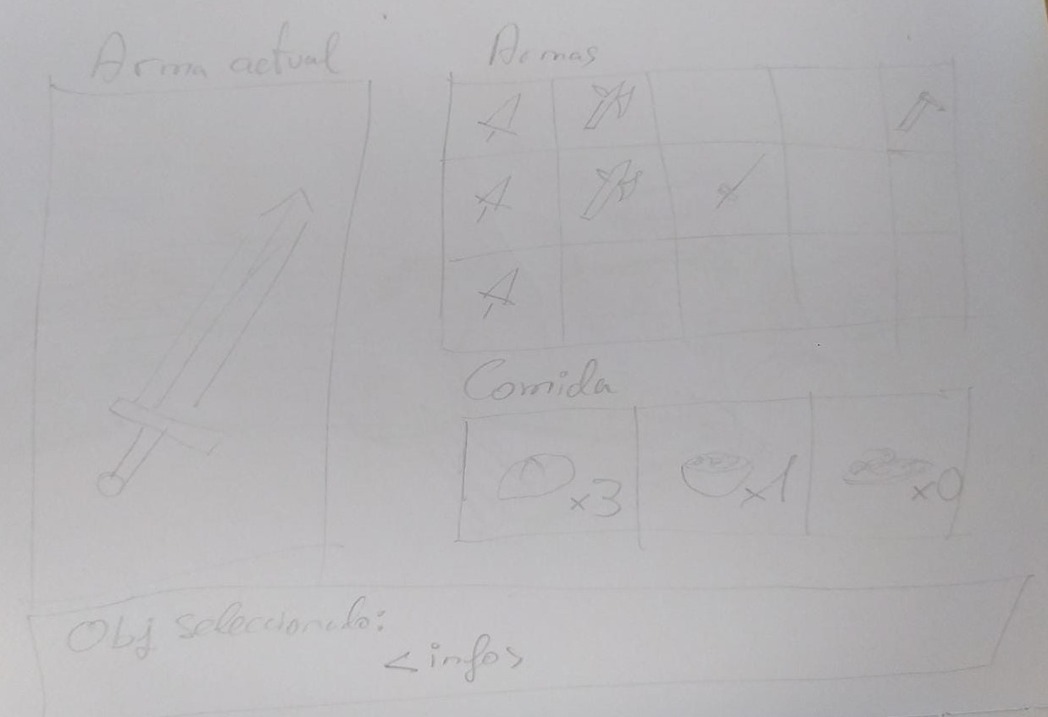 Arma actual
Armas
Comida
x3
x1
x0
Obj seleccionado:
<info>